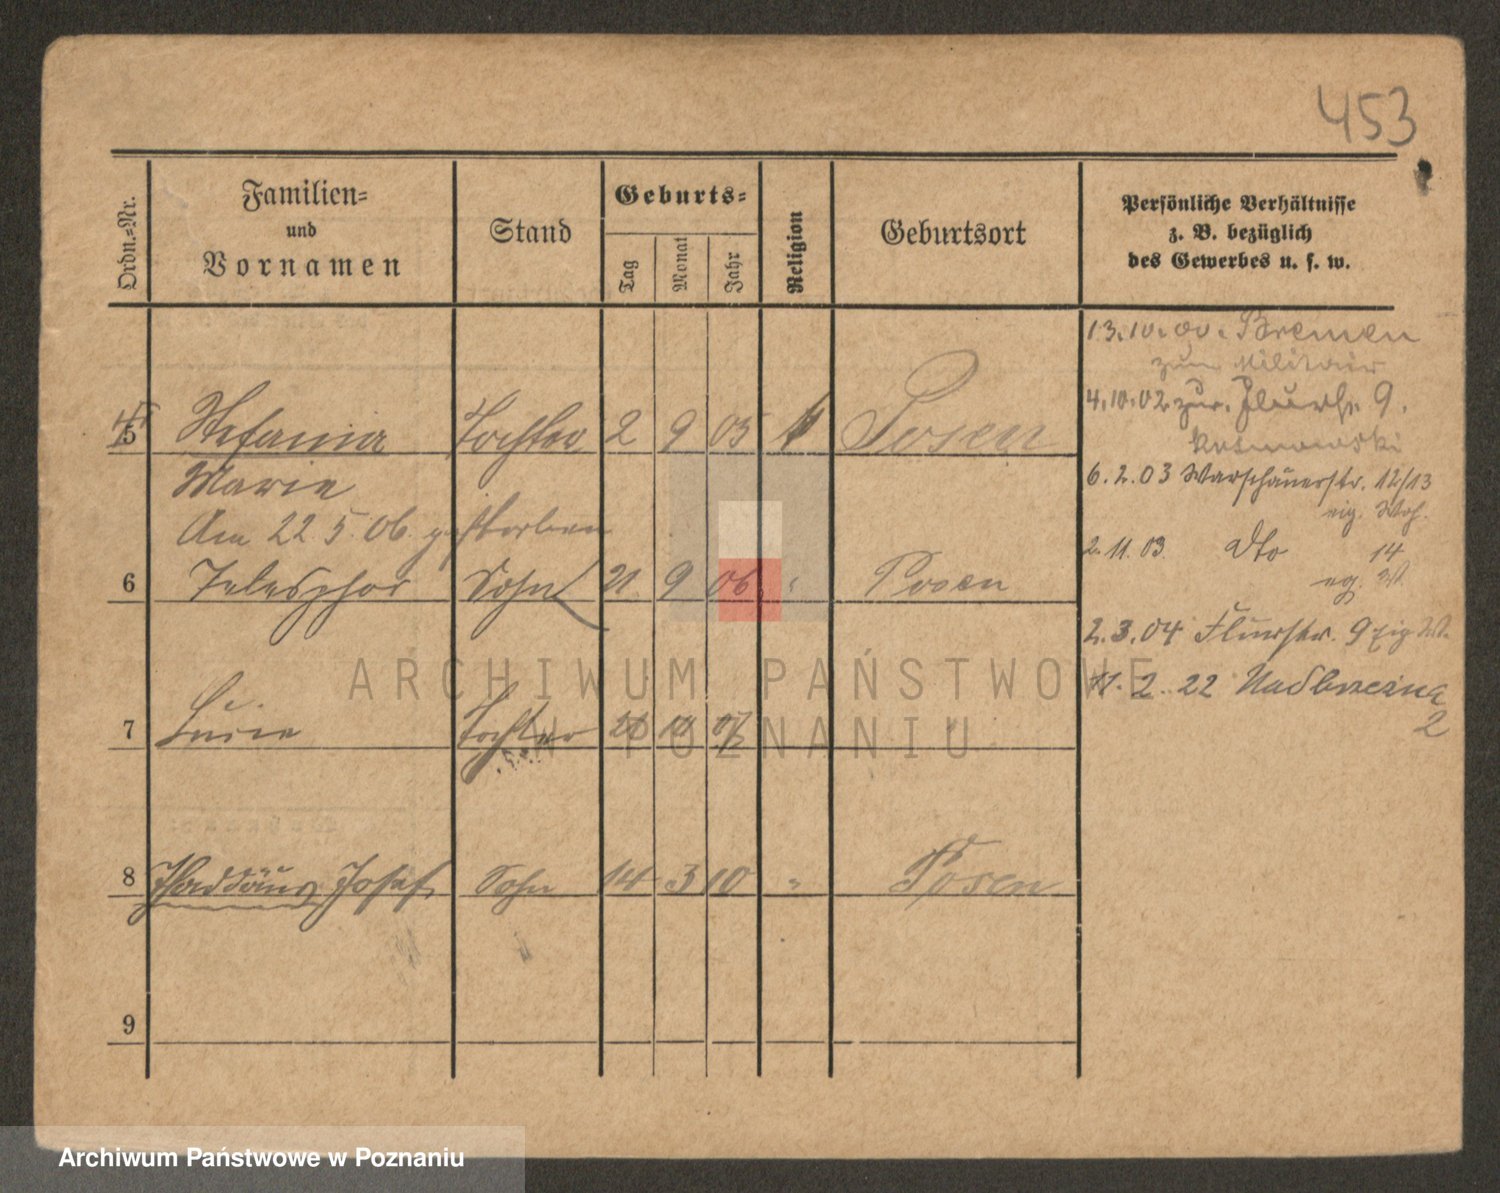 453
Ordn.=Nr.
Familien=
und
Vornamen
Stand
Geburts=
Tag
Monat
Jahr
Religion
Geburtsort
Persönliche Verhältnisse
z. B. bezüglich
des Gewerbes u. s. w.
13.10.00. Bremen
zum Militair
4.10.02 zur. 9.
5 Stefania Tochter 2 9 05 Posen
Marie
Am 22 5. 06. gestorben
6 Telesphor Sohn 21. 9 06. Posen
7 Tochter 10
8 Thaddäus Josef Sohn 14 3 10 " Posen
9
6.2.03 Warschauerstr. 12/13
eig. Woh.
2.11.03 Dto 14
eig. W.
2.3.04 Flurstr. 9 eig W.
11. 2. 22 Nadbrzeżna
2
ARCHIWUM PAŃSTWOWE
W POZNANIU
Archiwum Państwowe w Poznaniu